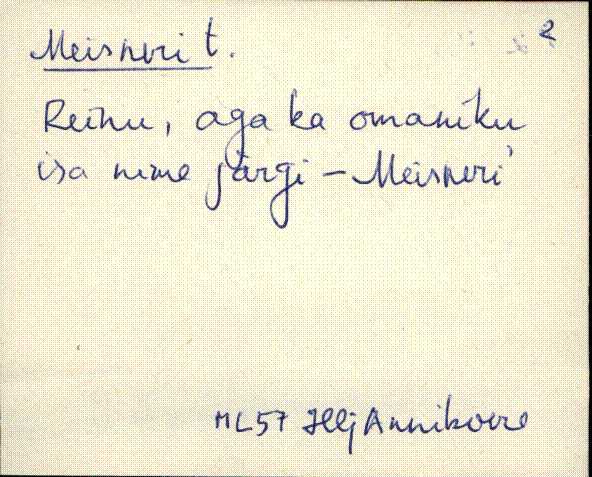 2
Meisneri t.
Reinu, aga ka omaniku
isa nime järgi – Meisneri
ML57 HljAnnikvere